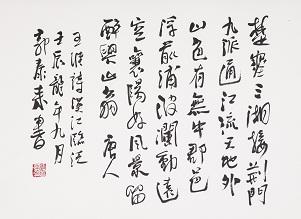 楚塞三湘接荆門
九派通江流天地外
山色有無中郡邑
浮前浦波瀾動遠
空襄陽好風景留
醉與山翁 唐人
王維詩漢江臨泛
壬辰龍年九月
郭泰来書